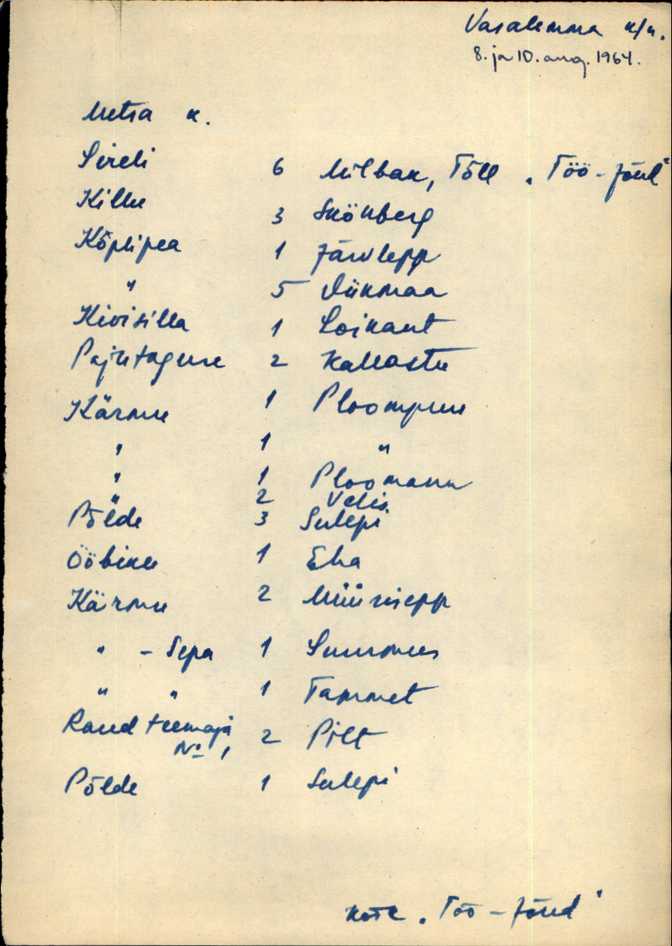 Vasalemma k/n.
8. ja 10. aug. 1964.
Metsa k.
Sireli 6 Milbak, Töll „Töö-jõud"
Killu 3 Skönberg
Köplipea 1 Järvlepp
" 5 Viikmaa
Kivisilla 1 Loikant
Pajutaguse 2 Kallastu
Kärmu 1 Ploompuu
" 1 "
" 1 Ploomann
" 2 Velis
Põlde 3 Sulepi
Ööbiku 1 Eha
Kärmu 2 Müürisepp
" - Sepa 1 Summus
" " 1 Tammet
Raudteemaja
No 1 2 Pilt
Põlde 1 Sulepi
kõik „Töö-jõud"